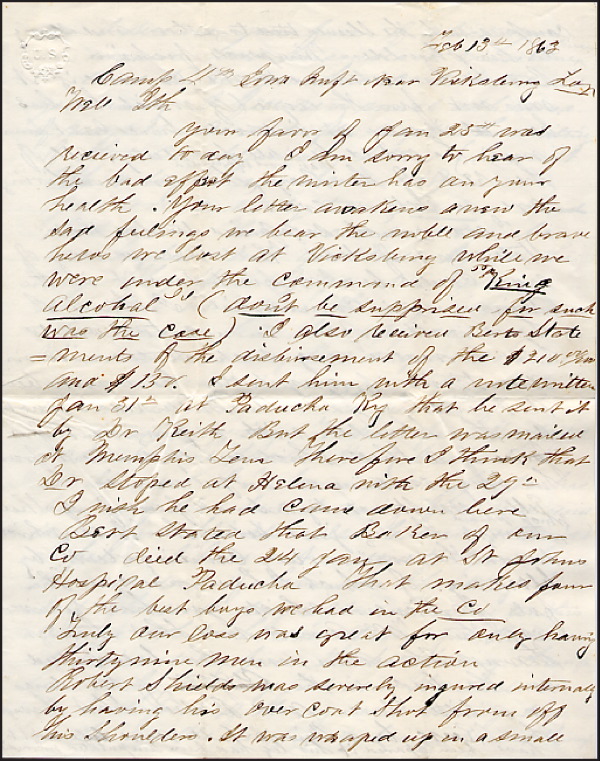 Feb 13th 1863
Camp 4th Iowa Inft near Vicksburg
Will
Your favor of Jan 25th was
recieved to day I am sorry to hear of
the bad effect the winter has on your
health. Your letter awakens anew the
sad feelings we bear the noble and brave
heros we lost at Vicksburg while we
were under the command of "King
alcohal" (dont be supprised for such
was the case) I also recieved Berts State
=ments of the disbursement of the $210
and $130. I sent him with a note written
Jan 31st at Paducha Ky that he sent it
by Dr Keith But the letter was mailed
at Memphis Tenn Therefore I think that
Dr stoped at Helena with the 29th
I wish he had come down here
Bert stated that Baker of our
Co died the 24 Jany at St Johns
Hospital Paducha That makes four
of the best boys we had in the Co
Truly our loss was great for only having
thirty nine men in the action
Robert Shields was severly ingured internaly
by having his over coat shot from off
his shoulders. It was wraped up in a small